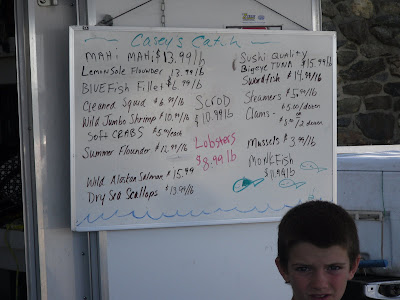 Casey's Catch
MAHI MAHI $13.99/lb
Lemon Sole Flounder 13.99/lb
BLUEFish Fillet $6.99/lb
Cleaned Squid $6.99/lb
Wild Jumbo Shrimp $10.99/lb
Soft CRABS $5.00/each
Summer Flounder $12.99/lb
Wild Alaskan Salmon $15.99
Dry Sea Scallops $13.99/lb
SCROD
$10.99/lb
Lobsters
$8.99 lb
Sushi QUALITY
Bigeye TUNA $15.99/lb
Swordfish $14.99/lb
Steamers $5.99/lb
Clams -
$5.00/dozen
2 dozen
Mussels $3.99/lb
MonkFish
$11.99/lb